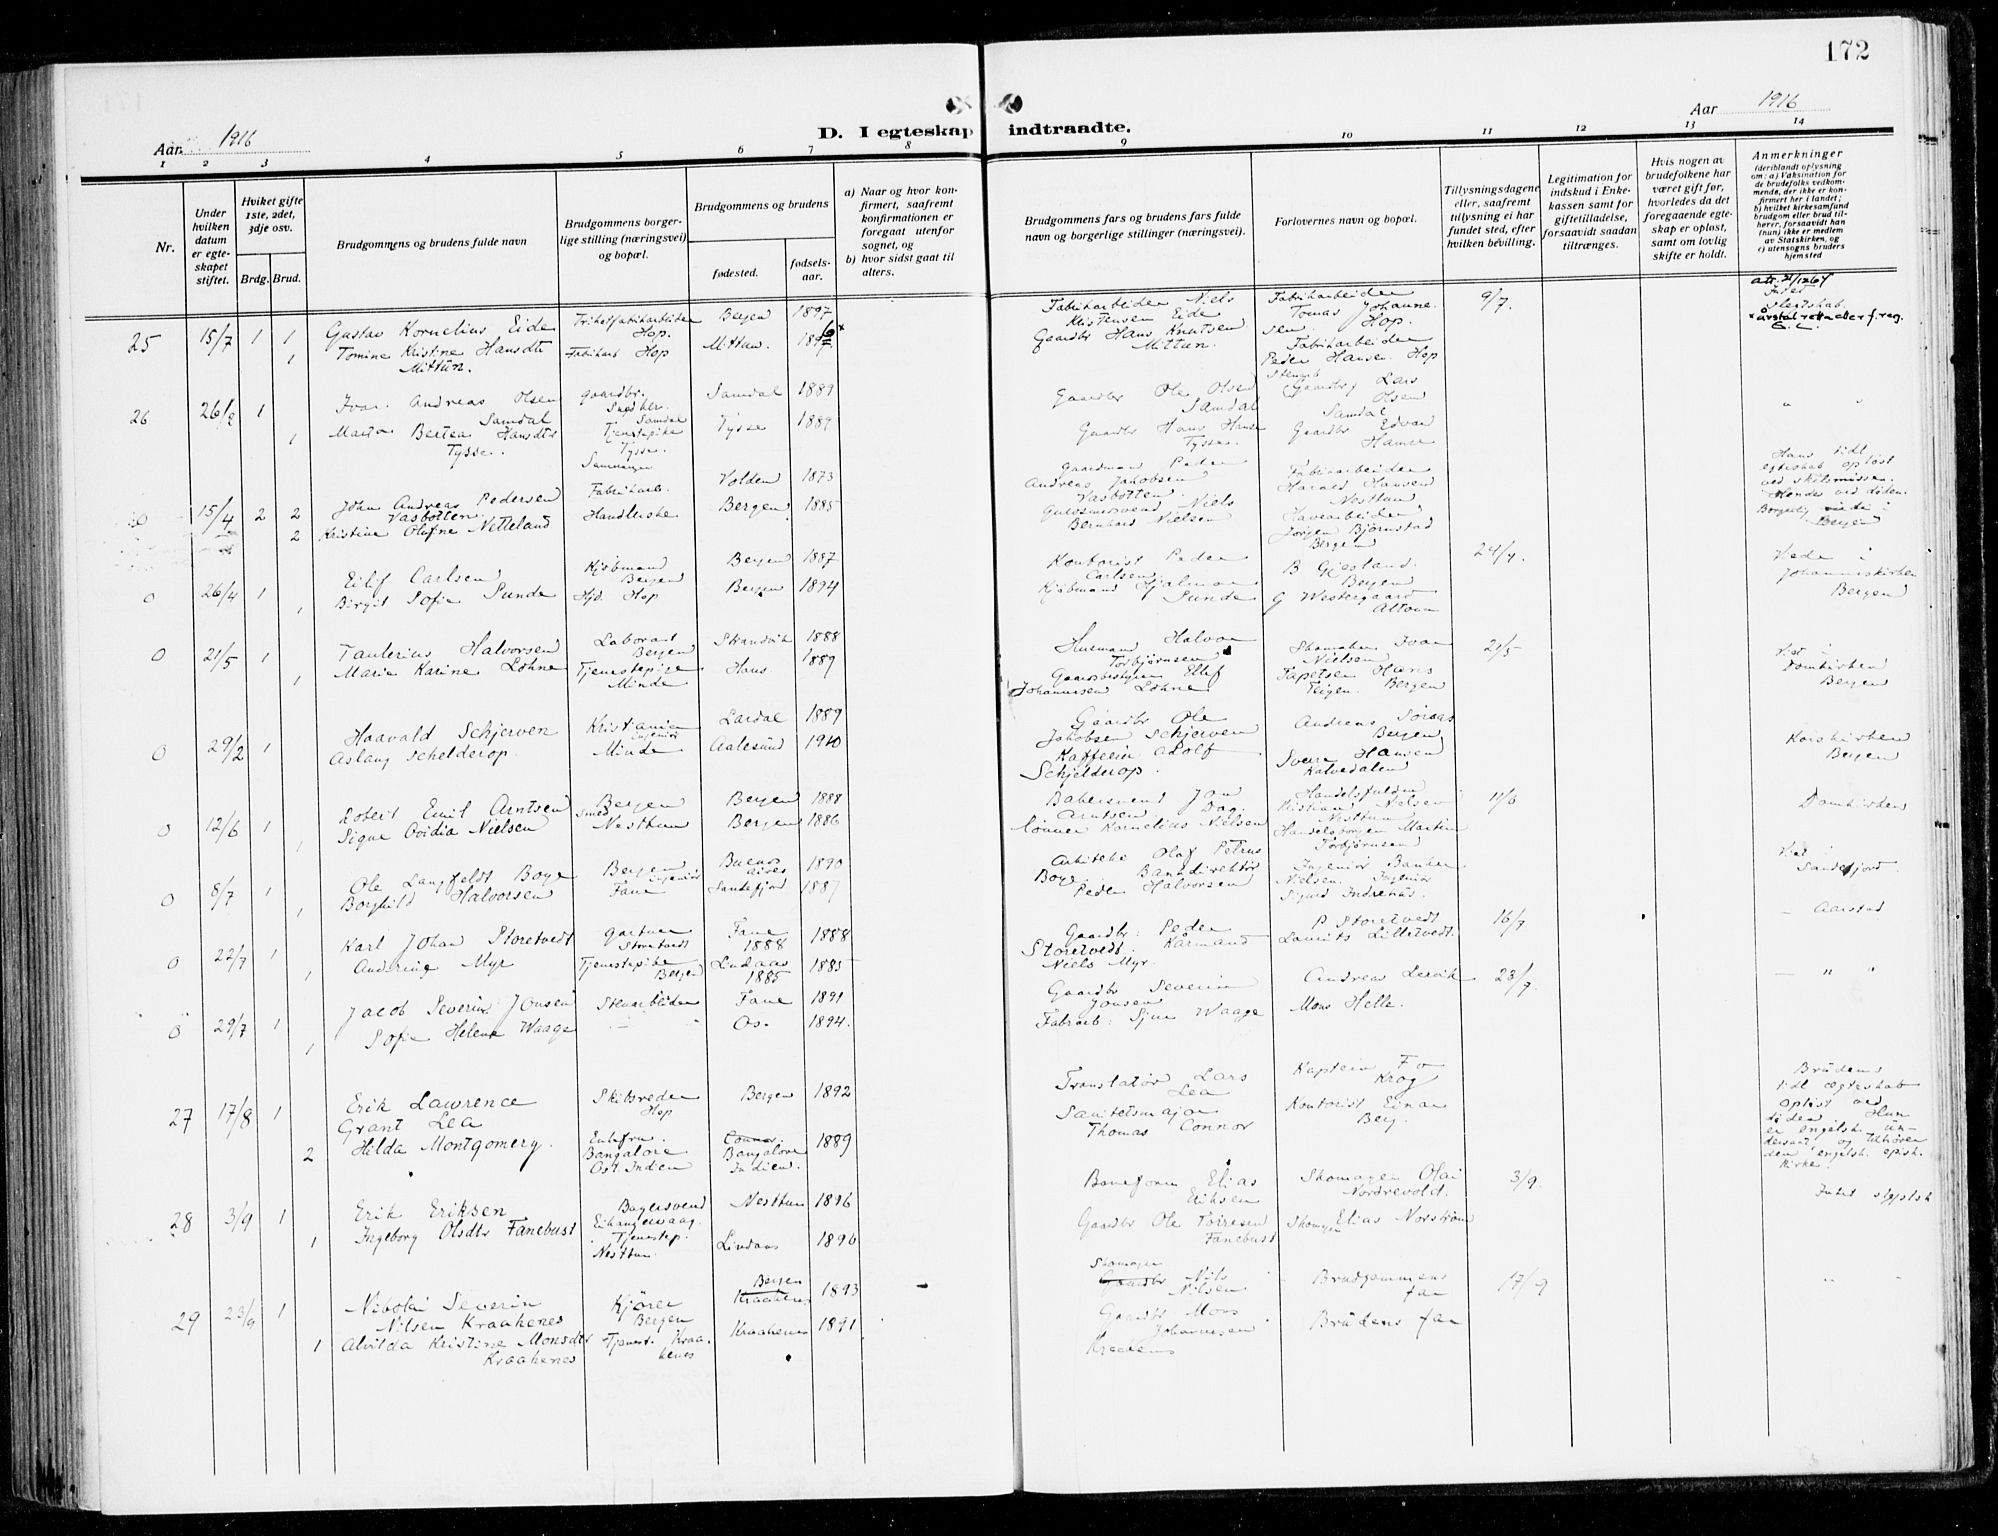 172
Aar 1916
D. I egteskap indtraadte.
Aar 1916
1 2 3 4 5 6 7 8 9 10 11 12 13 14
Nr.
Under hvilken datum er egteskapet stiftet.
Hviket gifte 1ste, 2det, 3dje osv.
Brdg. Brud.
Brudgommens og brudens fulde navn
Brudgommens borgerlige stilling (næringsvei) og bopæl.
Brudgommens og brudens
fødested.
fødselsaar.
a) Naar og hvor konfirmert, saafremt konfirmationen er foregaat utenfor sognet, og
b) hvor sidst gaat til alters.
Brudgommens fars og brudens fars fulde navn og borgerlige stillinger (næringsvei).
Forlovernes navn og bopæl.
Tillysningsdagene eller, saafremt tillysning ei har fundet sted, efter hvilken bevilling.
Legitimation for indskud i Enkekassen samt for giftetilladelse, forsaavidt saadan tiltrænges.
Hvis nogen av brudefolkene har været gift før, hvorledes da det foregaaende egteskap er opløst, samt om lovlig skifte er holdt.
Anmerkninger
(deriblandt oplysning om: a) Vaksination for de brudefolks vedkommende, der ikke er konfirmert her i landet; b) hvilket kirkesamfund brudgom eller brud tilhører, forsaavidt han (hun) ikke er medlem av Statskirken, og c) utensogns bruders hjemsted
25 15/7 1 1 Gustav Kornelius Eide
Hop. Bergen 1897
Fabrikarbeider Niels Kristensen Eide
Fabrikarbeider Tomas Johannesen Hop.
9/7.
1 Tomine Kristine Hansdtr Mittun.
Fabrikarb Hop Mittun.
Gaardbr Hans Knutsen Mittun.
Fabrikarbeider Peder Hansen Hop
Intet slektskab.
26 1 Ivar Andreas Olsen Samdal
gaardbr. Samdal Samdal 1889
Gaardbr Ole Olsen Samdal
Gaardbr Lars Olsen Samdal
1 Marta Bertea Hansdtr Tysse.
Tjenestepike Tysse. Tysse 1889
Gaardbr Hans Hansen Tysse.
Gaardbr Edvar Hansen
0 15/4 2 2 John Andreas Pedersen Vasbotten
Fabrikarb. Volden 1873
Gaardmand Peder Andreas Jakobsen Vasbotten.
Fabrikarbeider Harald Hansen Nesttun
2 Kristine Olafne Netteland
Handlerske Bergen 1885
Guldsmedsvend Niels Bernhard Nielsen
Havearbeider Jørgen Bjørnstad Bergen
Hans tidl egteskab opløst ved skilsmissen. Hendes ved døden. Borgerlig viede i Bergen
0 26/4 1 Eilif Carlsen
Kjøbmand Bergen Bergen 1887.
Kontorist Peder Carlsen
B Gjesland. Bergen
24/4.
1 Birgit Sofie Sunde
Hjd. Hop Bergen 1894
Kjøbmand Hjalmar Sunde
G Westergaard
Viede i Johanneskirken Bergen
0 21/5 1 Taulerius Halvorsen
Laborant Bergen Strandvik 1888
Husmand Halvor Torbjørnsen
Skomaker Ivar Nielsen
21/5
1 Marie Karine Lohne
Tjenestepige Minde Haus. 1889
Gaardbestyrer Ellef Johannesen Lohne
Tapetser Hans Teigen. Bergen
Viet i Domkirken Bergen
0 29/2 1 Haavald Schjerven
Kristiania Ingeniør Lardal 1889
Gaardbr Ole Jakobsen Schjerven
Andreas Søraas Bergen
Aslaug Schelderop.
Minde Aalesund 1910
Adolf Schjelderop.
Sverre Hansen Kalvedalen
Korskirken Bergen
0 12/6 1 Robert Emil Arntsen
Smed Bergen Bergen 1888
Bakersvend Jan Dag. Arntsen
Handelsfuldm Kristian Nielsen Nesttun
11/6
1 Signe Ovidia Nielsen
Nesttun Bergen 1886
Kornelius Nielsen
Handelsborger Martin Torbjørnsen
Domkirken
0 8/7 1 Ole Langfeldt Boye
Bergen Ingeniør Buenos aires 1890
Arkitekt Olaf Petrus Boye
Ingeniør Banker Nielsen
1 Borghild Halvorsen
Fane Sandefjord 1887
Bankdirektør Peder Halvorsen
Ingeniør Sigurd Indrenæs.
Viet i Sandefjord.
0 22/7 1 Karl Johan Storetvedt
gartner Storetvedt Fane 1888 1888
Gaardbr: Peder Storetvedt.
P Storetvedt
16/7
1 Andrine Myr
Tjenestepike Bergen Lindaas 1885 1885
Kårmand Niels Myr.
Laurits Lilletvedt.
– Aarstad
0 29/7 1 Jacob Severin Jonsen
Stenarbeider Fane 1891
Gaardbr Severin Jonsen
Andreas Lervik
23/7
1 Sofie Helene Waage
– – Os. 1894.
Fabrarb: Sjur Waage
Mons Helle.
– " "
27 17/8 1 Erik Lawrence Grant Lea
Skibsreder Hop Bergen 1892
Translatør Lars Lea
Kaptein Fo Krog
2 Hilda Montgomery.
Enkefru. Bangalore Ost. Indien Connor. Bangalore Indien. 1889
Sanitetsmajor Thomas Connor
Kontorist Einar Berg.
Brudens tidl ægteskab opløst ved døden. Hun er engelsk undersaat, og tilhører den engelsk. episk. kirke.
28 3/9 1 Erik Eriksen
Bagersvend Eikangervaag. Nesttun 1896
Baneform Elias Eriksen
Skomager Olai Nordrevold.
3/9.
1 Ingeborg Olsdtr Fanebust
Tjenestep. Nesttun. Lindaas 1896
Gaardbr Ole Torresen Fanebust
Skomager Elias Norstrøm
Intet slegtsk
29 23/9 1 Nikolai Severin Nilsen Kraakenes
Kjører Bergen Bergen Kraakenes 1893 –
Skomager Gaardbr Nils Nilsen
Brudgommens far
17/9
1 Alvilda Kristine Monsdtr Kraakenes
Tjenest. Kraakenes Kraakenes 1891
Gaardbr Mons Johannesen Kraakenes
Brudens far
" "